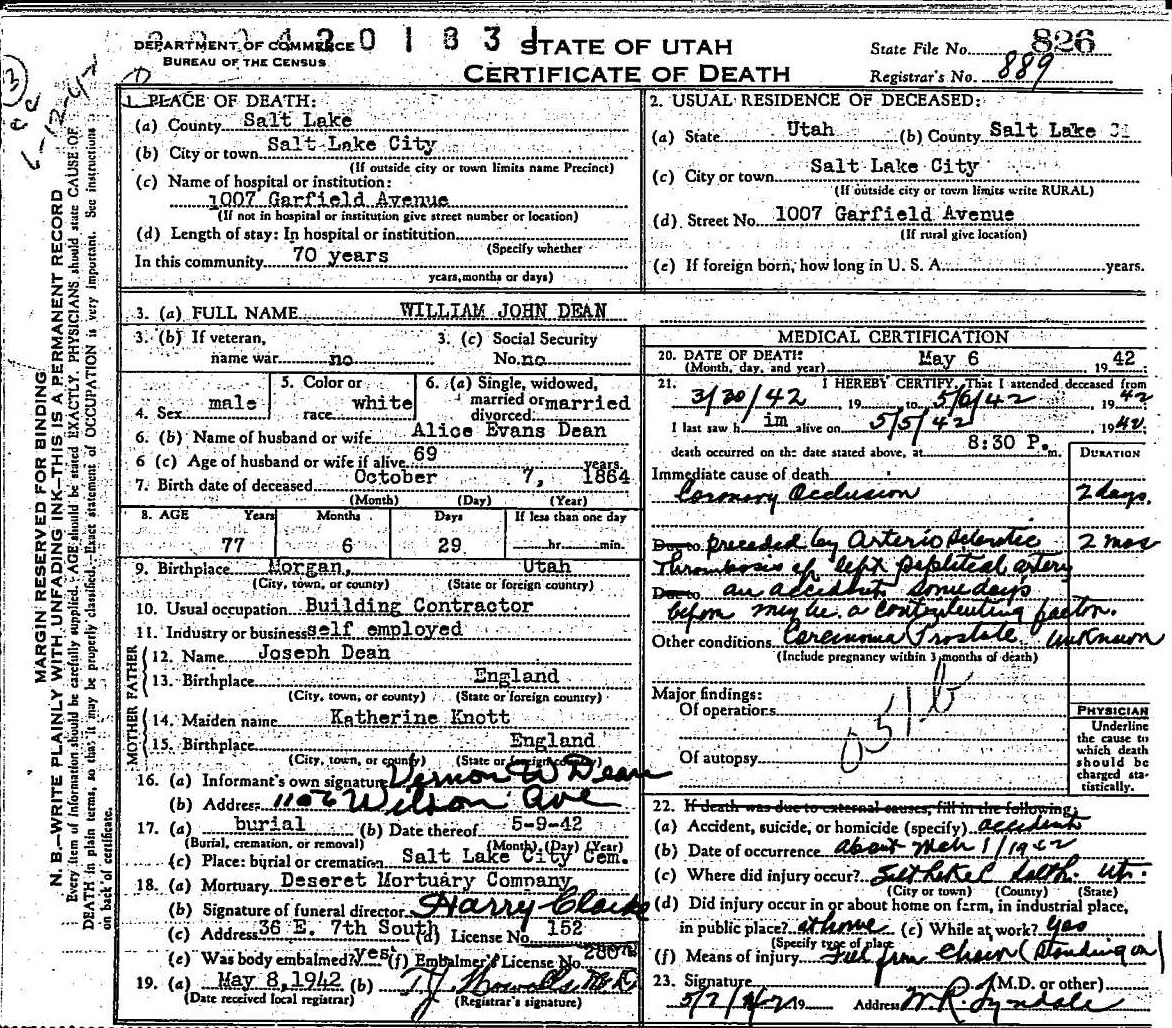 20420183
DEPARTMENT OF COMMERCE
BUREAU OF THE CENSUS
STATE OF UTAH
CERTIFICATE OF DEATH
State File No. 826
Registrar's No. 889
1. PLACE OF DEATH:
(a) County Salt Lake
(b) City or town Salt Lake City
(If outside city or town limits name Precinct)
(c) Name of hospital or institution:
1007 Garfield Avenue
(If not in hospital or institution give street number or location)
(d) Length of stay: In hospital or institution
(Specify whether
In this community 70 years
years, months or days)
2. USUAL RESIDENCE OF DECEASED:
(a) State Utah (b) County Salt Lake Ci
(c) City or town Salt Lake City
(If outside city or town limits write RURAL)
(d) Street No. 1007 Garfield Avenue
(If rural give location)
(e) If foreign born, how long in U. S. A. years.
3. (a) FULL NAME WILLIAM JOHN DEAN
3. (b) If veteran,
name war no
3. (c) Social Security
No. no
4. Sex male
5. Color or
race white
6. (a) Single, widowed,
married or
divorced married
6. (b) Name of husband or wife Alice Evans Dean
6 (c) Age of husband or wife if alive 69 years.
7. Birth date of deceased October 7, 1864
(Month) (Day) (Year)
8. AGE Years Months Days If less than one day
77 6 29 hr. min.
9. Birthplace Morgan, Utah
(City, town, or county) (State or foreign country)
10. Usual occupation Building Contractor
11. Industry or business self employed
FATHER
12. Name Joseph Dean
13. Birthplace England
(City, town, or county) (State or foreign country)
MOTHER
14. Maiden name Katherine Knott
15. Birthplace England
(City, town, or county) (State or foreign country)
16. (a) Informant's own signature Vernon W Dean
(b) Address 1106 Wilson Ave
17. (a) burial (b) Date thereof 5-9-42
(Burial, cremation, or removal) (Month) (Day) (Year)
(c) Place: burial or cremation Salt Lake City Cem.
18. (a) Mortuary Deseret Mortuary Company
(b) Signature of funeral director Harry Clarke
(c) Address 36 E. 7th South (d) License No. 152
(e) Was body embalmed? yes (f) Embalmer's License No.
19. (a) May 8, 1942 (b)
(Date received local registrar) (Registrar's signature)
MEDICAL CERTIFICATION
20. DATE OF DEATH: May 6 1942
(Month, day, and year)
21. I HEREBY CERTIFY, That I attended deceased from
3/30/42, 19 to 5/6/42 1942
I last saw h im alive on 5/5/42 1942
death occurred on the date stated above, at 8:30 P. m.
DURATION
Immediate cause of death
Coronary Occlusion 2 days.
Due to preceded by Arterio Sclerotic 2 mos
Thrombosis of left popliteal artery
Due to an accident some days
before may be a contributing factor.
Other conditions Carcinoma Prostate unknown
(Include pregnancy within 3 months of death)
Major findings:
Of operations
Of autopsy
PHYSICIAN
Underline
the cause to
which death
should be
charged sta-
tistically.
22. If death was due to external causes, fill in the following:
(a) Accident, suicide, or homicide (specify) accident
(b) Date of occurrence about Mch 1/1942
(c) Where did injury occur?
(City or town) (County) (State)
(d) Did injury occur in or about home on farm, in industrial place,
in public place? at home (e) While at work? yes
(Specify type of place)
(f) Means of injury Fell from Chair (Standing on)
23. Signature (M.D. or other)
5/7/42 19 Address W. R. Tyndale
3
6-12-42
MARGIN RESERVED FOR BINDING
N. B.—WRITE PLAINLY WITH UNFADING INK—THIS IS A PERMANENT RECORD
Every item of information should be carefully supplied. AGE should be stated EXACTLY. PHYSICIANS should state CAUSE OF
DEATH in plain terms, so that it may be properly classified. Exact statement of OCCUPATION is very important. See instructions
on back of certificate.